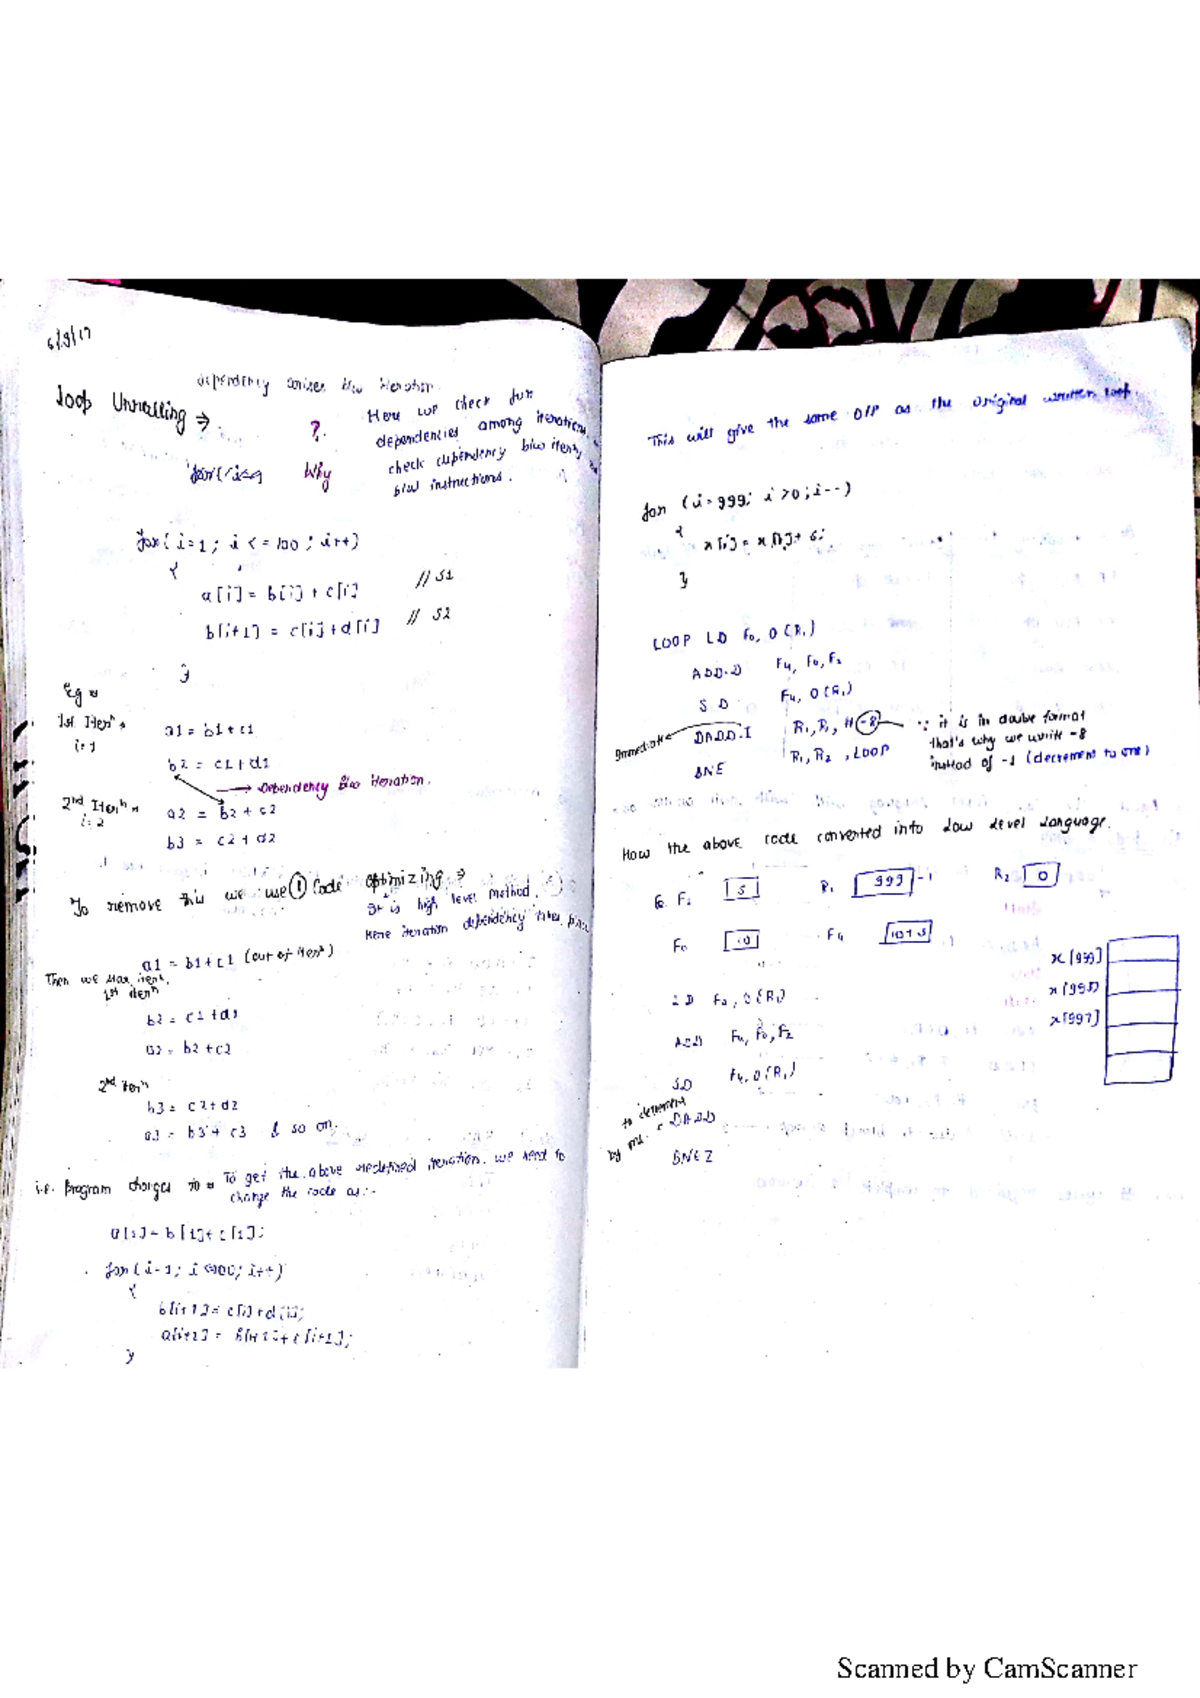 6/9/17
Loop Unrolling →
dependency comes b/w iteration.
?
Why
for(i<=9
Here we check for
dependencies among iterations,
check dependency b/w iterns
b/w instructions.
for( i=1 ; i <= 100 ; i++)
{
a[i] = b[i] + c[i] // S1
b[i+1] = c[i] + d[i] // S2
}
Eg →
1st Itern →
i=1
a1 = b1 + c1
b2 = c1 + d1
→ Dependency b/w iteration.
2nd Itern →
i=2
a2 = b2 + c2
b3 = c2 + d2
To remove this we use ① Code optimizing →
It is high level method.
Here iteration dependency takes place
a1 = b1 + c1 (out of itern)
Then we start itern.
1st itern
b2 = c1 + d1
a2 = b2 + c2
2nd itern
b3 = c2 + d2
a3 = b3 + c3 & so on.
i.e. Program changes to → To get the above redefined iteration, we need to
change the code as:-
a[1] = b[1] + c[1];
for( i=1; i<=100; i++)
{
b[i+1] = c[i] + d[i];
a[i+1] = b[i+1] + c[i+1];
}
This will give the same O/P as the original written loop.
for (i=999; i>0; i--)
{
x[i] = x[i] + s;
}
LOOP LD F0, 0(R1)
ADD.D F4, F0, F2
S D F4, 0(R1)
Immediate
DADD.I R1, R1, # -8 ∵ it is in double format
that's why we write -8
instead of -1 (decrement to one)
BNE R1, R2, LOOP
How the above code converted into low level language.
F2 S R1 999 -1 R2 0
F0 10 F4 10+S
x[999]
x[998]
x[997]
LD F0, 0(R1)
ADD F4, F0, F2
SD F4, 0(R1)
to decrement
by
DADD
BNEZ
Scanned by CamScanner